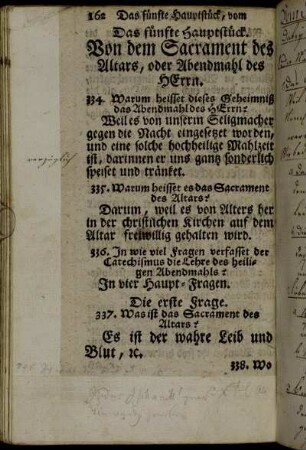 162 Das fünfte Hauptstück, vom
Das fünfte Hauptstück.
Von dem Sacrament des
Altars, oder Abendmahl des
HErrn.
334. Warum heisset dieses Geheimniß
das Abendmahl des HErrn?
Weil es von unserm Seligmacher
gegen die Nacht eingesetzt worden,
und eine solche hochheilige Mahlzeit
ist, darinnen er uns gantz sonderlich
speiset und tränket.
335. Warum heisset es das Sacrament
des Altars?
Darum, weil es von Alters her
in der christlichen Kirchen auf dem
Altar freiwillig gehalten wird.
336. In wie viel Fragen verfasset der
Catechismus die Lehre des heili-
gen Abendmahls?
In vier Haupt-Fragen.
Die erste Frage.
337. Was ist das Sacrament des
Altars?
Es ist der wahre Leib und
Blut, ꝛc.
338. Wo